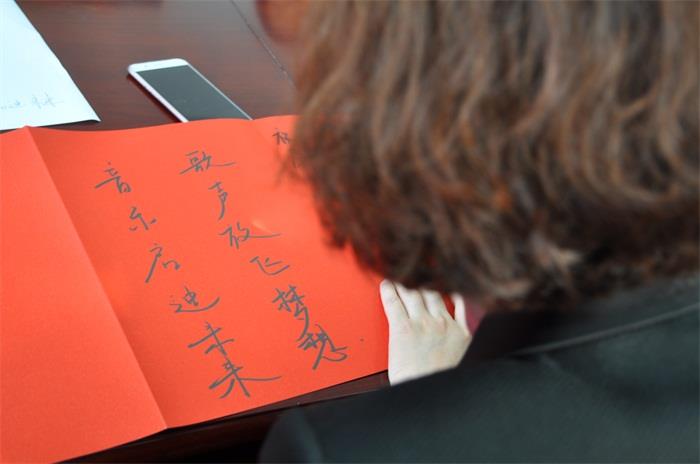 歌声放飞梦想.
音乐启迪未来